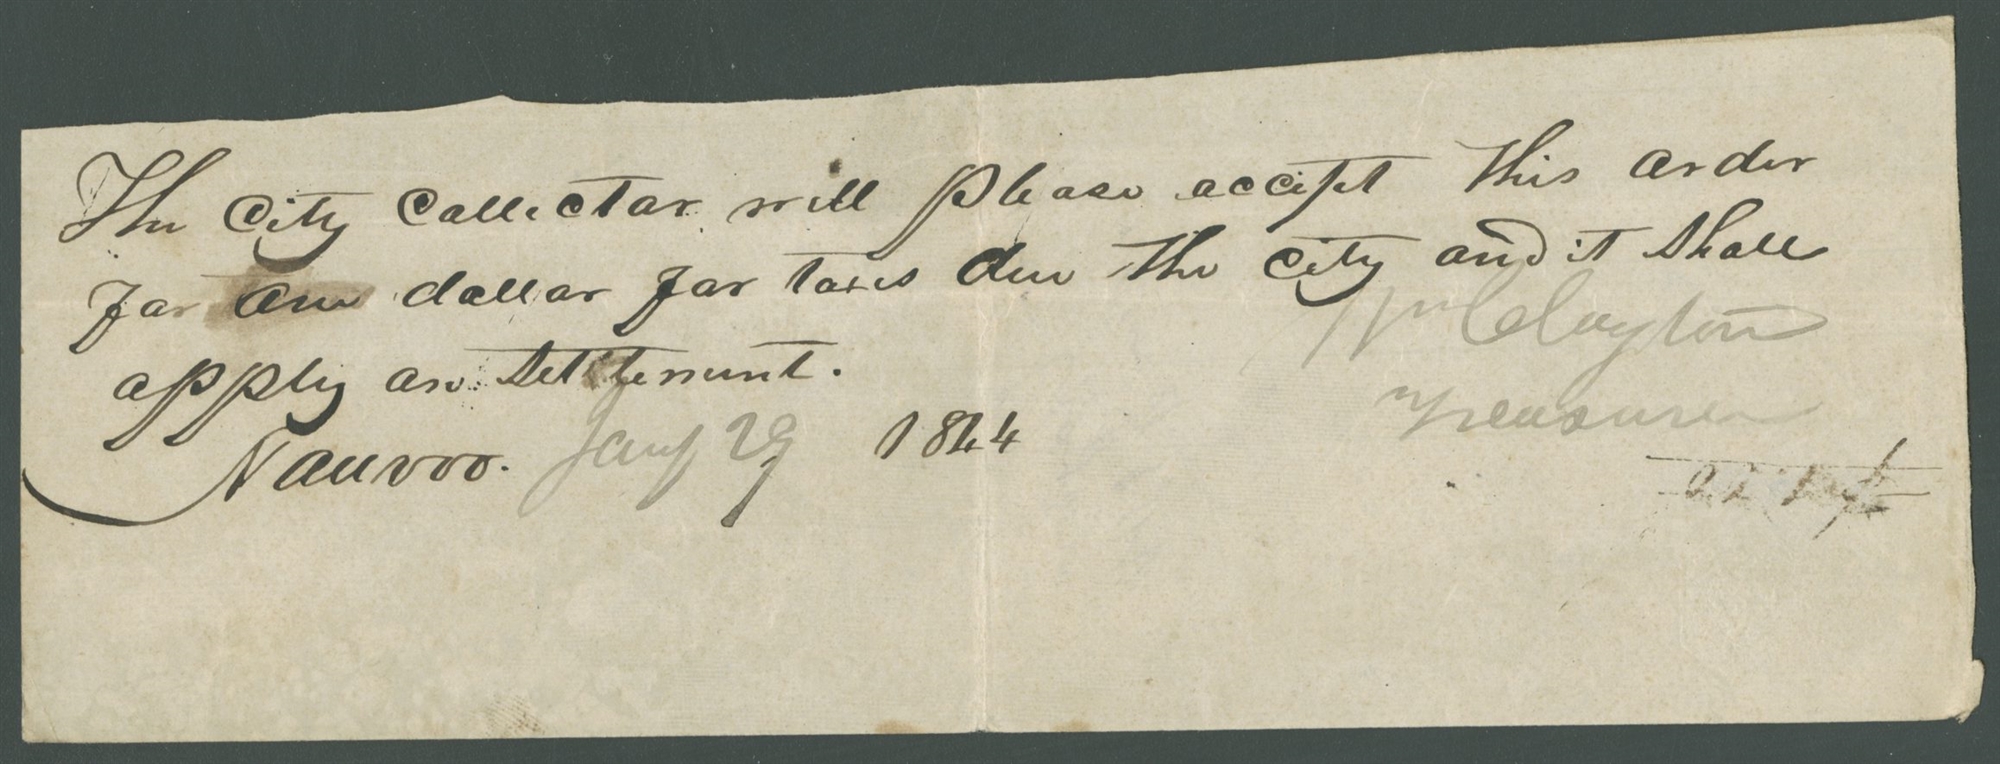 The City Collector will please accept this order
for one dollar for taxes due the City and it shall
apply on settlement.
Wm Clayton
Treasurer
Nauvoo. Jany 29 1844